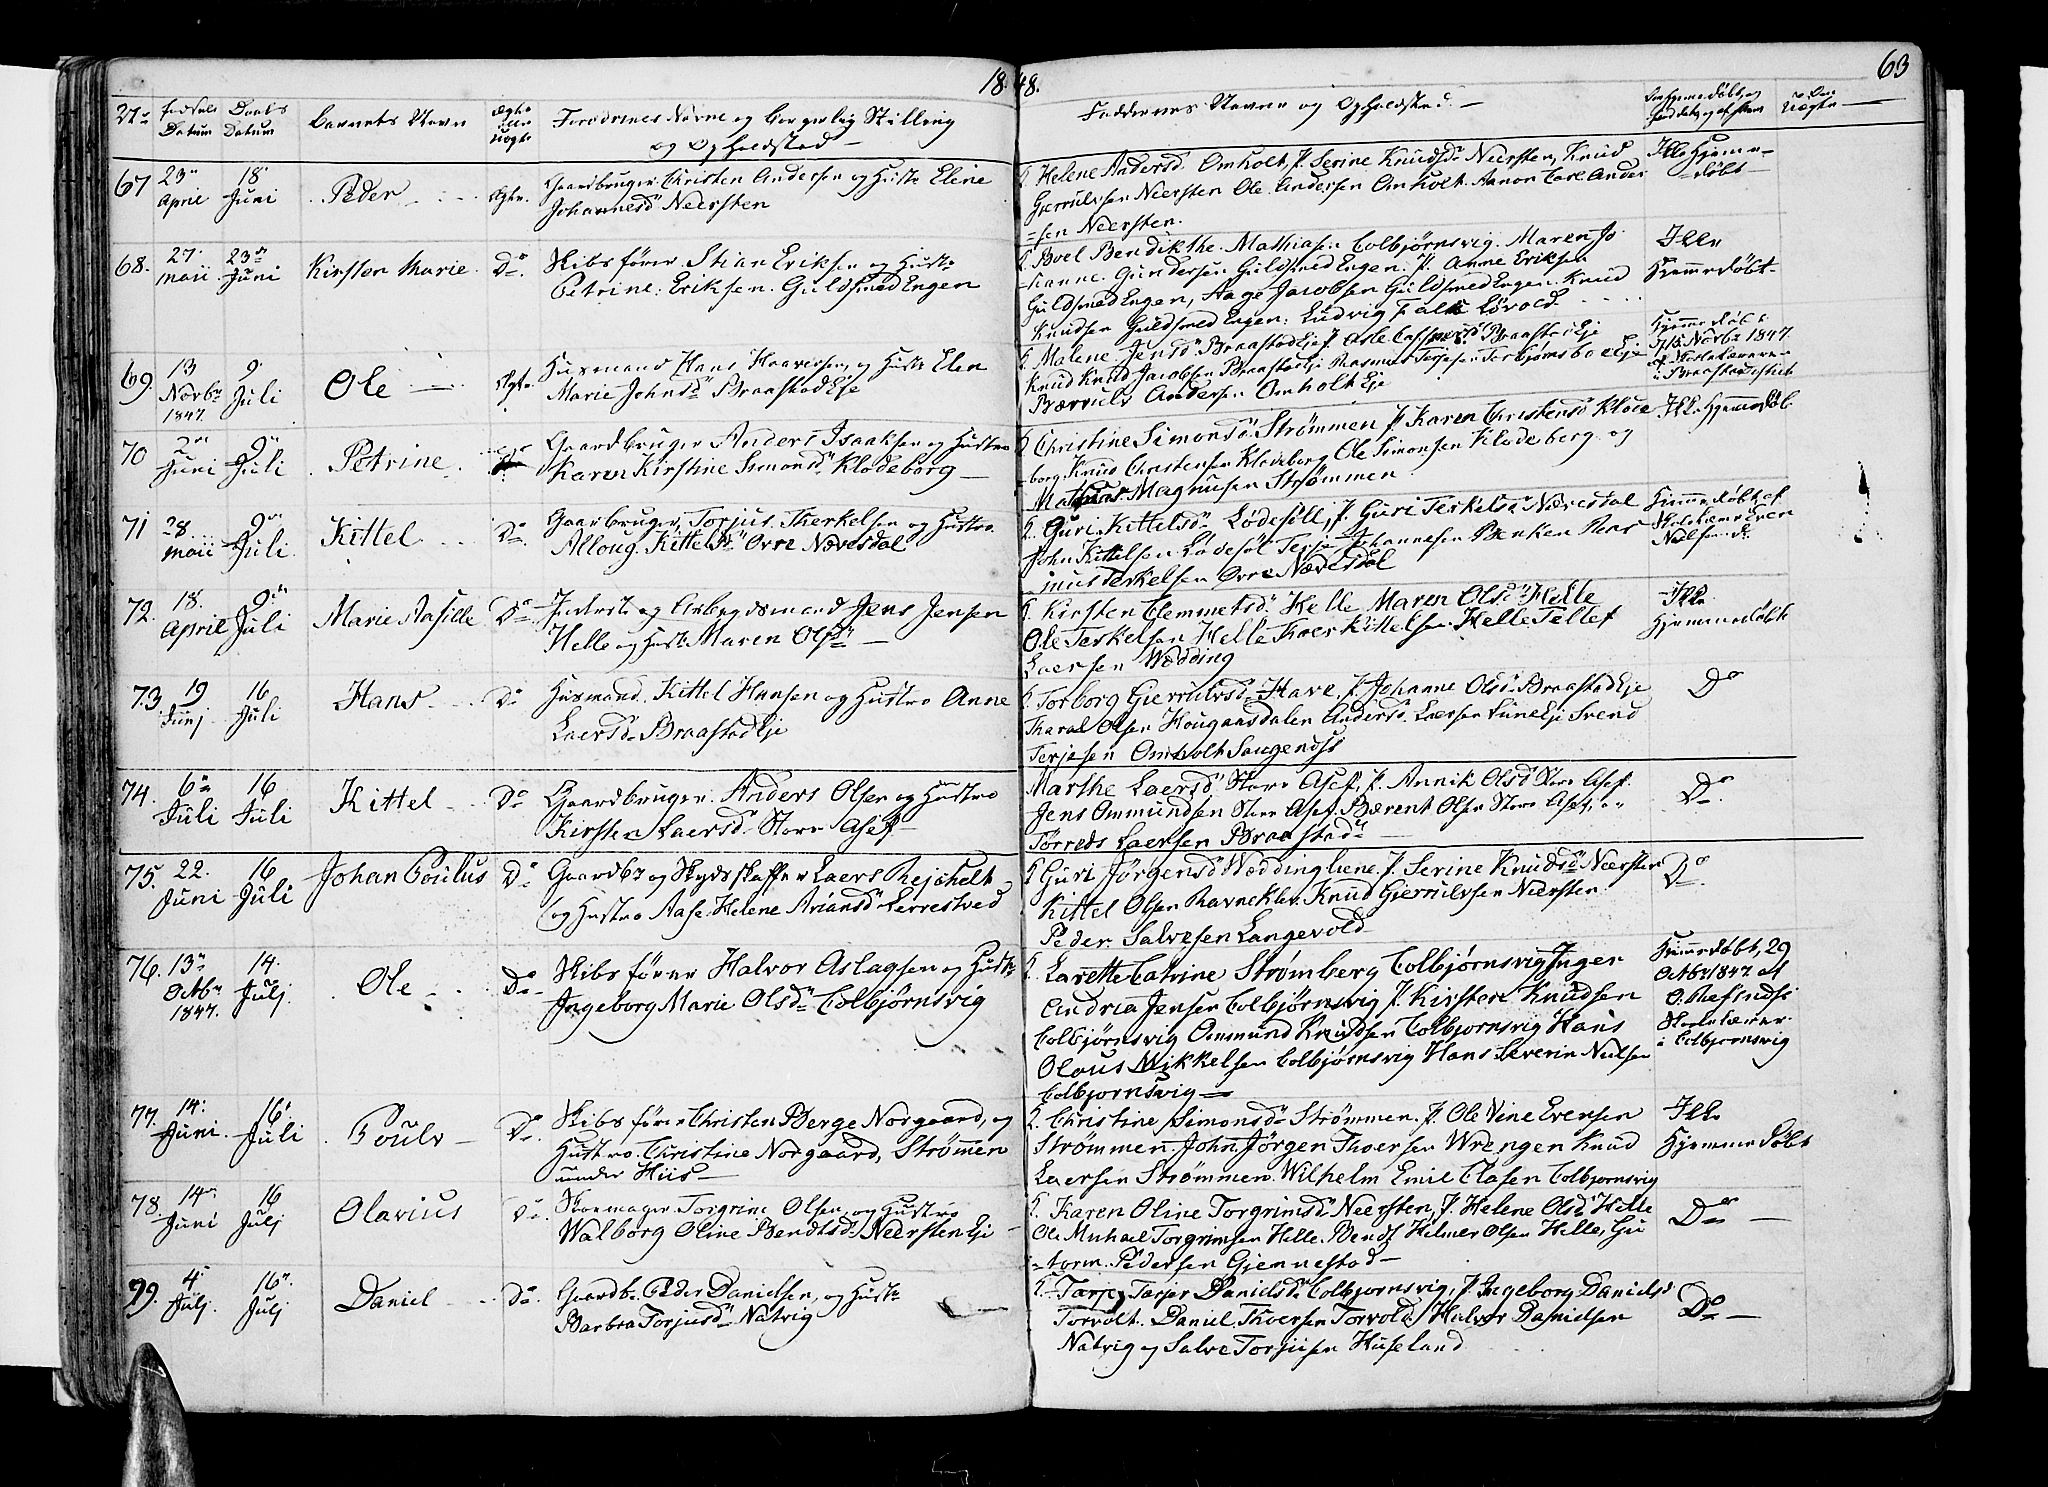 1848.
63
No Fødsels Datum Daabs Datum Barnets Navn Ægte eller Uægte Forældrenes Navne og borgerlig Stilling og Opholdsted
Faddernes Navne og Opholdsted
67 23 April 18 Juni Peder Ægte Gaardbruger Christen Andersen og Hustr Elene
Johannesd Neersten
Helene Andersd Omholt, Serine Knudsd Neersten, Knud
Gjerrulvsen Neersten Ole Andersen Omholt Aanon Carl Ander
=sen Neersten.
Ikke Hjemme=
=døbt
68. 27. Maii 23 Juni Kirsten Marie Do Skibsfører Stian Eriksen og Hustr
Petrine Eriksen Guldsmed Engen
Boel Bendikthe Mathiasen Colbjørnsvig Maren Jo
=hanne Gundersen Guldsmed Engen. Anne Eriksen
Guldsmed Engen, Aage Jacobsen Guldsmed Engen Knud
Knudsen Guldsmed Engen, Ludvig Falk Løvold
Ikke
Hjemmedøbt
69. 13 Novbr 1847 9 Juli Ole Ægte Husmand Hans Haavorsen og Hustr Elen
Marie Johnsd Braastad Eje
Malene Jensd Braastad Eje
Knud Jacobsen Braastad Eje Rasmus Terjesen Torbjørnsboe Eje
Andersen Omholt Eje
Hjemmedøbt
15 Novbr 1847
70 2 Juni 9 Juli Petrine Gaardbruger Anders Isaaksen og Hustro
Karen Kirstine Simonsd Klodeborg
Christine Simonsd Strømmen Karen Christensd Klode
borg, Knud Christensen Klodeborg Ole Simonsen Klodeborg og
Mathias Magnusen Strømmen
Ikke Hjemmedøb.
71 28 Maii 9 Juli Kittel Do Gaarbruger Torjus Therkelsen og Hustro
Alloug Kittelsd Øvre Nævesdal
Guri Kittelsd Lødesøll, Guri Terkelsd Næversdal
John Kittelsen Lødesøl Terje Johannesen Benken
Terkelsen Øvre Næversdal
Hjemmedøbt af
Skolelærer Even
Nielsen
72. 18. April 9 Juli Marie Aasille Do Inderst og Arbeydsmand Jens Jensen
Helle og Hust Maren Olsd
Kirsten Clemmetsd Helle Maren Olsd Helle
Ole Terkelsen Helle Kittelsen Helle Tellef
Laersen Wædding
Ikke
Hjemmedøbt
73. 19 Junj 16 Juli Hans Do Husmand Kittel Hansen og Hustro Anne
Laersd Braastad Eje
Torborg Gjerrulvsd Have Johanne Olsd Braastad Eje
Tharal Olsen Hougaasdalen Anders Laersen Lune Eje Svend
Terjesen Omholt
Do
74. 6 Juli 16 Juli Kittel Do Gaardbruger Anders Olsen og Hustro
Kirsten Laersd Store Asef
Marthe Laersd Store Asef, Annik Olsd Store Asef
Jens Ommundsen Store Asef Bærent Olsen Store Asef,
Tørreds Laersen Braastad
Do
75. 22. Juni 16 Juli Johan Poulus Do Gaardbr og Skydsskaffer Laers Rejchelt
og Hustro Aase Helene Ariansd Lerrestved
Guri Jørgensd Wædding, Serine Knudsd Neersten
Kittel Olsen Ravneklev Knud Gjerrulvsen Neersten
Peder Salvesen Langevold
Do
76. 13 Octbr 1847. 14 Julj Ole Do Skibsfører Halvor Aslagsen og Hust
Ingeborg Marie Olsd Colbjørnsvig
Catrine Strømberg Colbjørnsvig Inger
Andria Jensen Colbjørnsvig Kirsten Knudsen
Colbjørnsvig Ommund Knudsen Colbjornsvig Hans
Olaus Mikkelsen Colbjørnsvig Hans Severin Nielsen
Colbjornsvig
Hjemmedøbt, 29
Octbr 1847 af
Skolelærer
i Colbjornsvig
77. 14 Juni 16 Juli Poulv Do Skibsfører Christen Berge Norgaard, og
Hustro Christine Norgaard, Strømen
under Hiis
Christine Simonsd Strømmen Ole Evensen
Strømmen John Jörgen Thoersen Wrengen Knud
Laersen Strømmen Wilhelm Emil Clasen Colbjornsvig
Ikke
Hjemmedøbt
78. 14 Juni 16 Julj Olavius Do Skoemager Torgrim Olsen, og Hustro
Walborg Oline Bendtsd Neersten Eje
Karen Oline Torgrimsd Neersten, Helene Olsd Helle
Ole Michael Torgrimsen Helle Helmer Olsen Helle, Gu
=torm Pedersen Gjennestad
Do
79. 4 Julj 16 Julj Daniel Do Gaardbr. Peder Danielsen, og Hustr
Barbra Torjusd Natvig
Danielsd Colbjornsvig, Ingeborg Danielsd
Torvolt Daniel Thoersen Torvold, Halvor Danielsen
Natvig og Salve Torjusen Huseland
Do